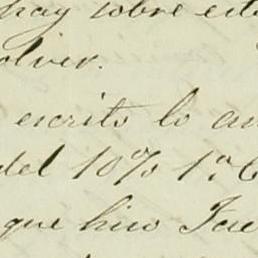 hay sobre est
olver.
escrito lo an
del 10% 1ª C
que hizo Jac